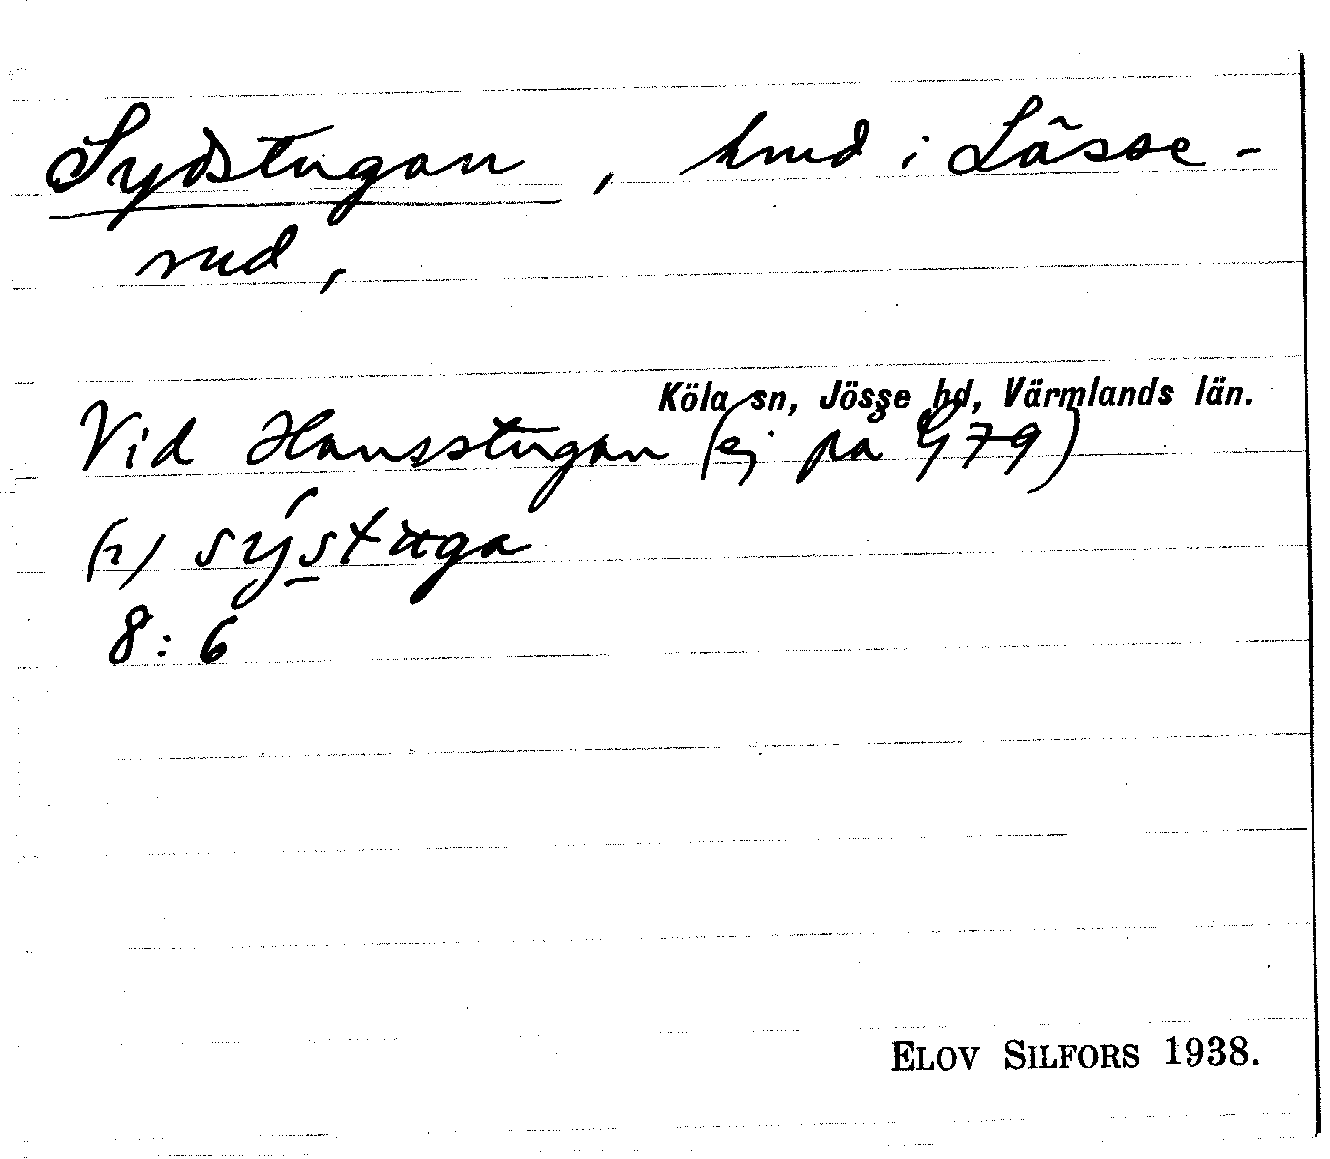 Sydstugan, hmd i Lässe-
rud,
Köla sn, Jösse hd, Värmlands län.
Vid Hansstugan (ej på G 79)
(2) systuga
8:6
ELOV SILFORS 1938.